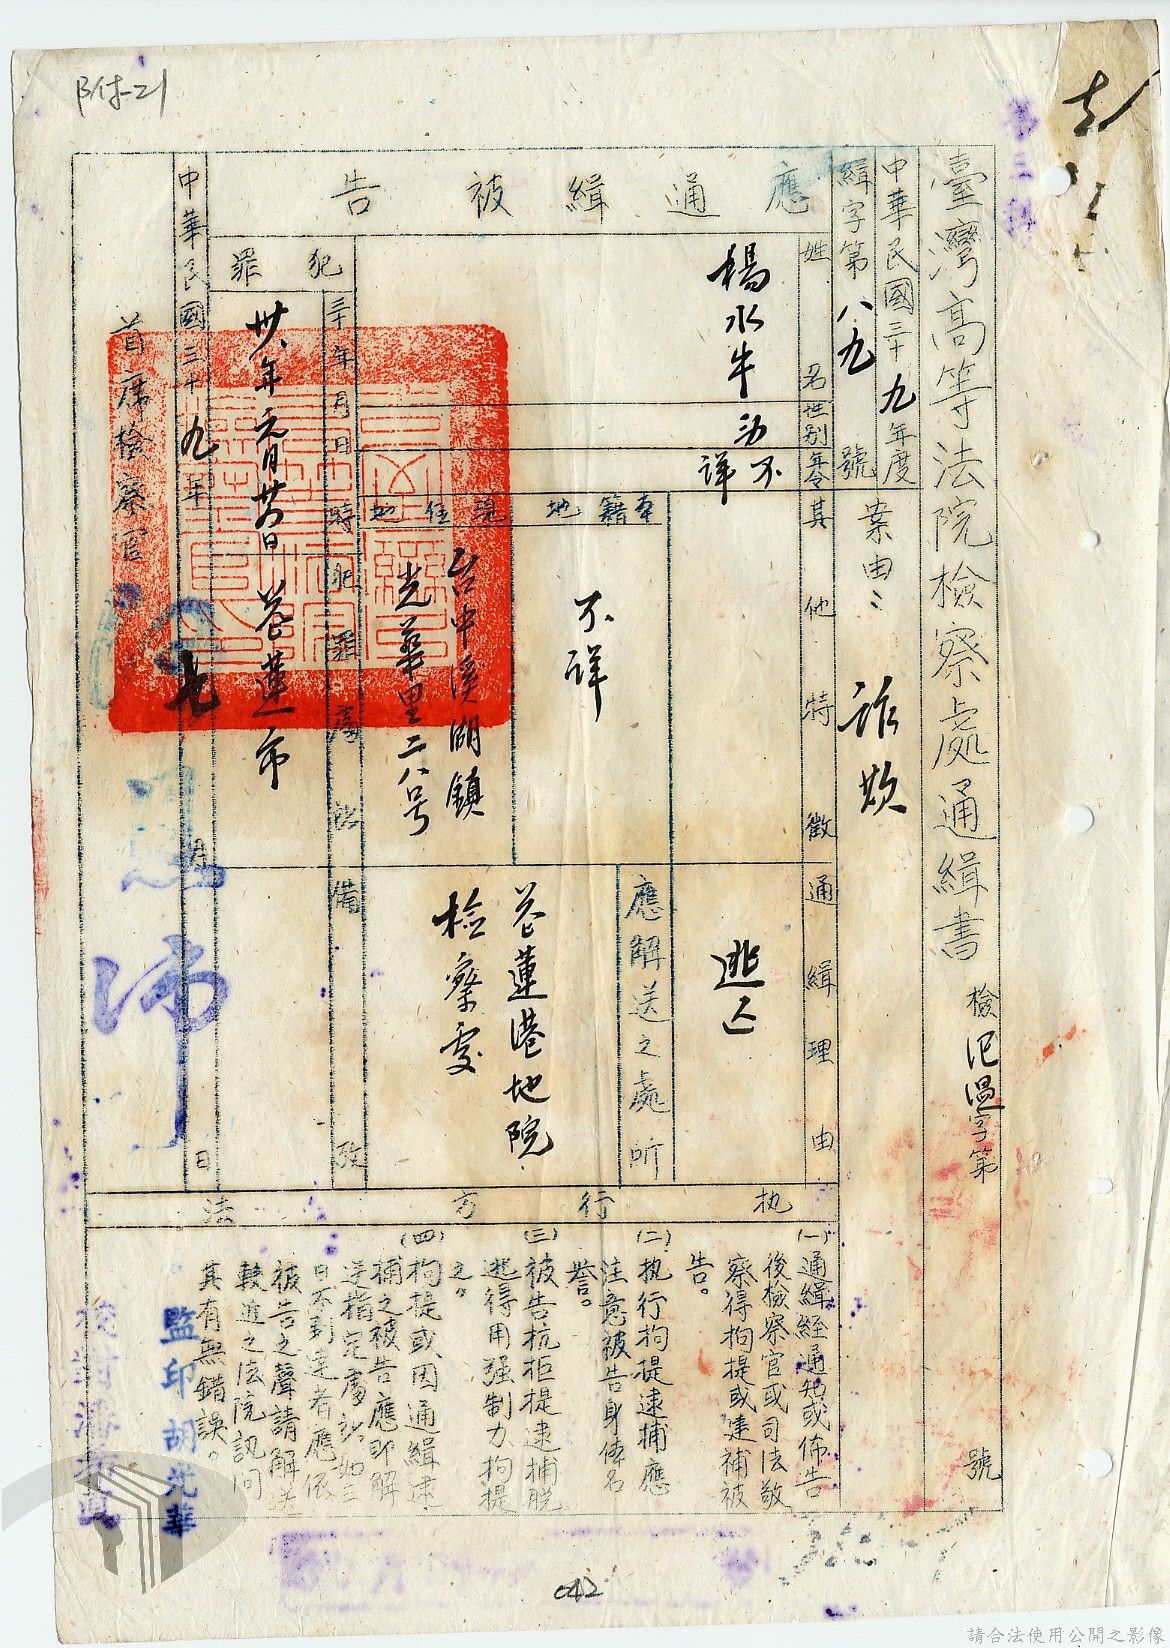 附-21
臺灣高等法院檢察處通緝書
檢 字第
號
中華民國三十九年度
緝字第八九號
案由：詐欺
應通緝被告
姓名
性別
年令
其他特徵
通緝理由
楊水牛
不詳
逃亡
應解送之處所
花蓮港地院
檢察處
本籍地
現住地
不詳
台中溪湖鎮
光華里二八号
犯罪
三十年月日時
犯罪處所
卅八年元月廿日
花蓮市
備攷
中華民國三十九年
月
日
首席檢察官
执行方法
(一)通緝經通知或佈告
後檢察官或司法警
察得拘提或逮補被
告。
(二)执行拘提逮捕應
注意被告身体名
譽。
(三)被告抗拒提逮捕脱
逃得用强制力拘提
之。
(四)拘提或因通緝逮
捕之被告應即解
送指定處所如三
日不到達者應依
被告之聲請解送
較近之法院訊问
其有無錯誤。
監印胡光華
042
請合法使用公開之影像